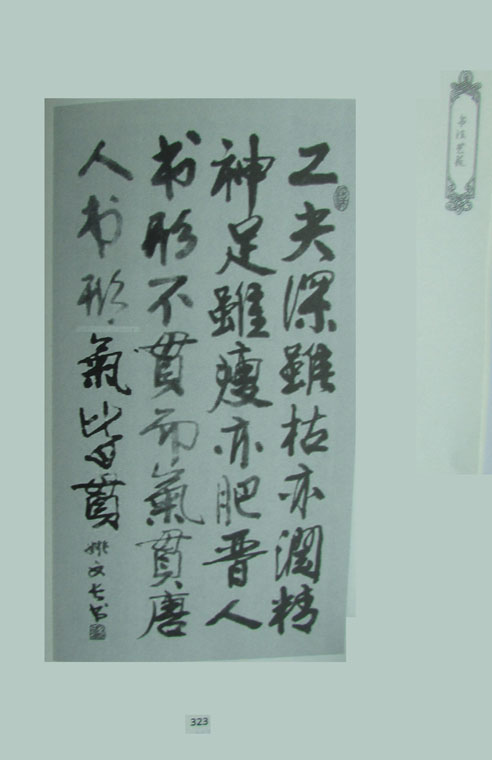 工夫深雖枯亦潤精
神足雖瘦亦肥晋人
书形不貫而氣貫唐
人书形氣皆貫
姚文长书
书法艺苑
323